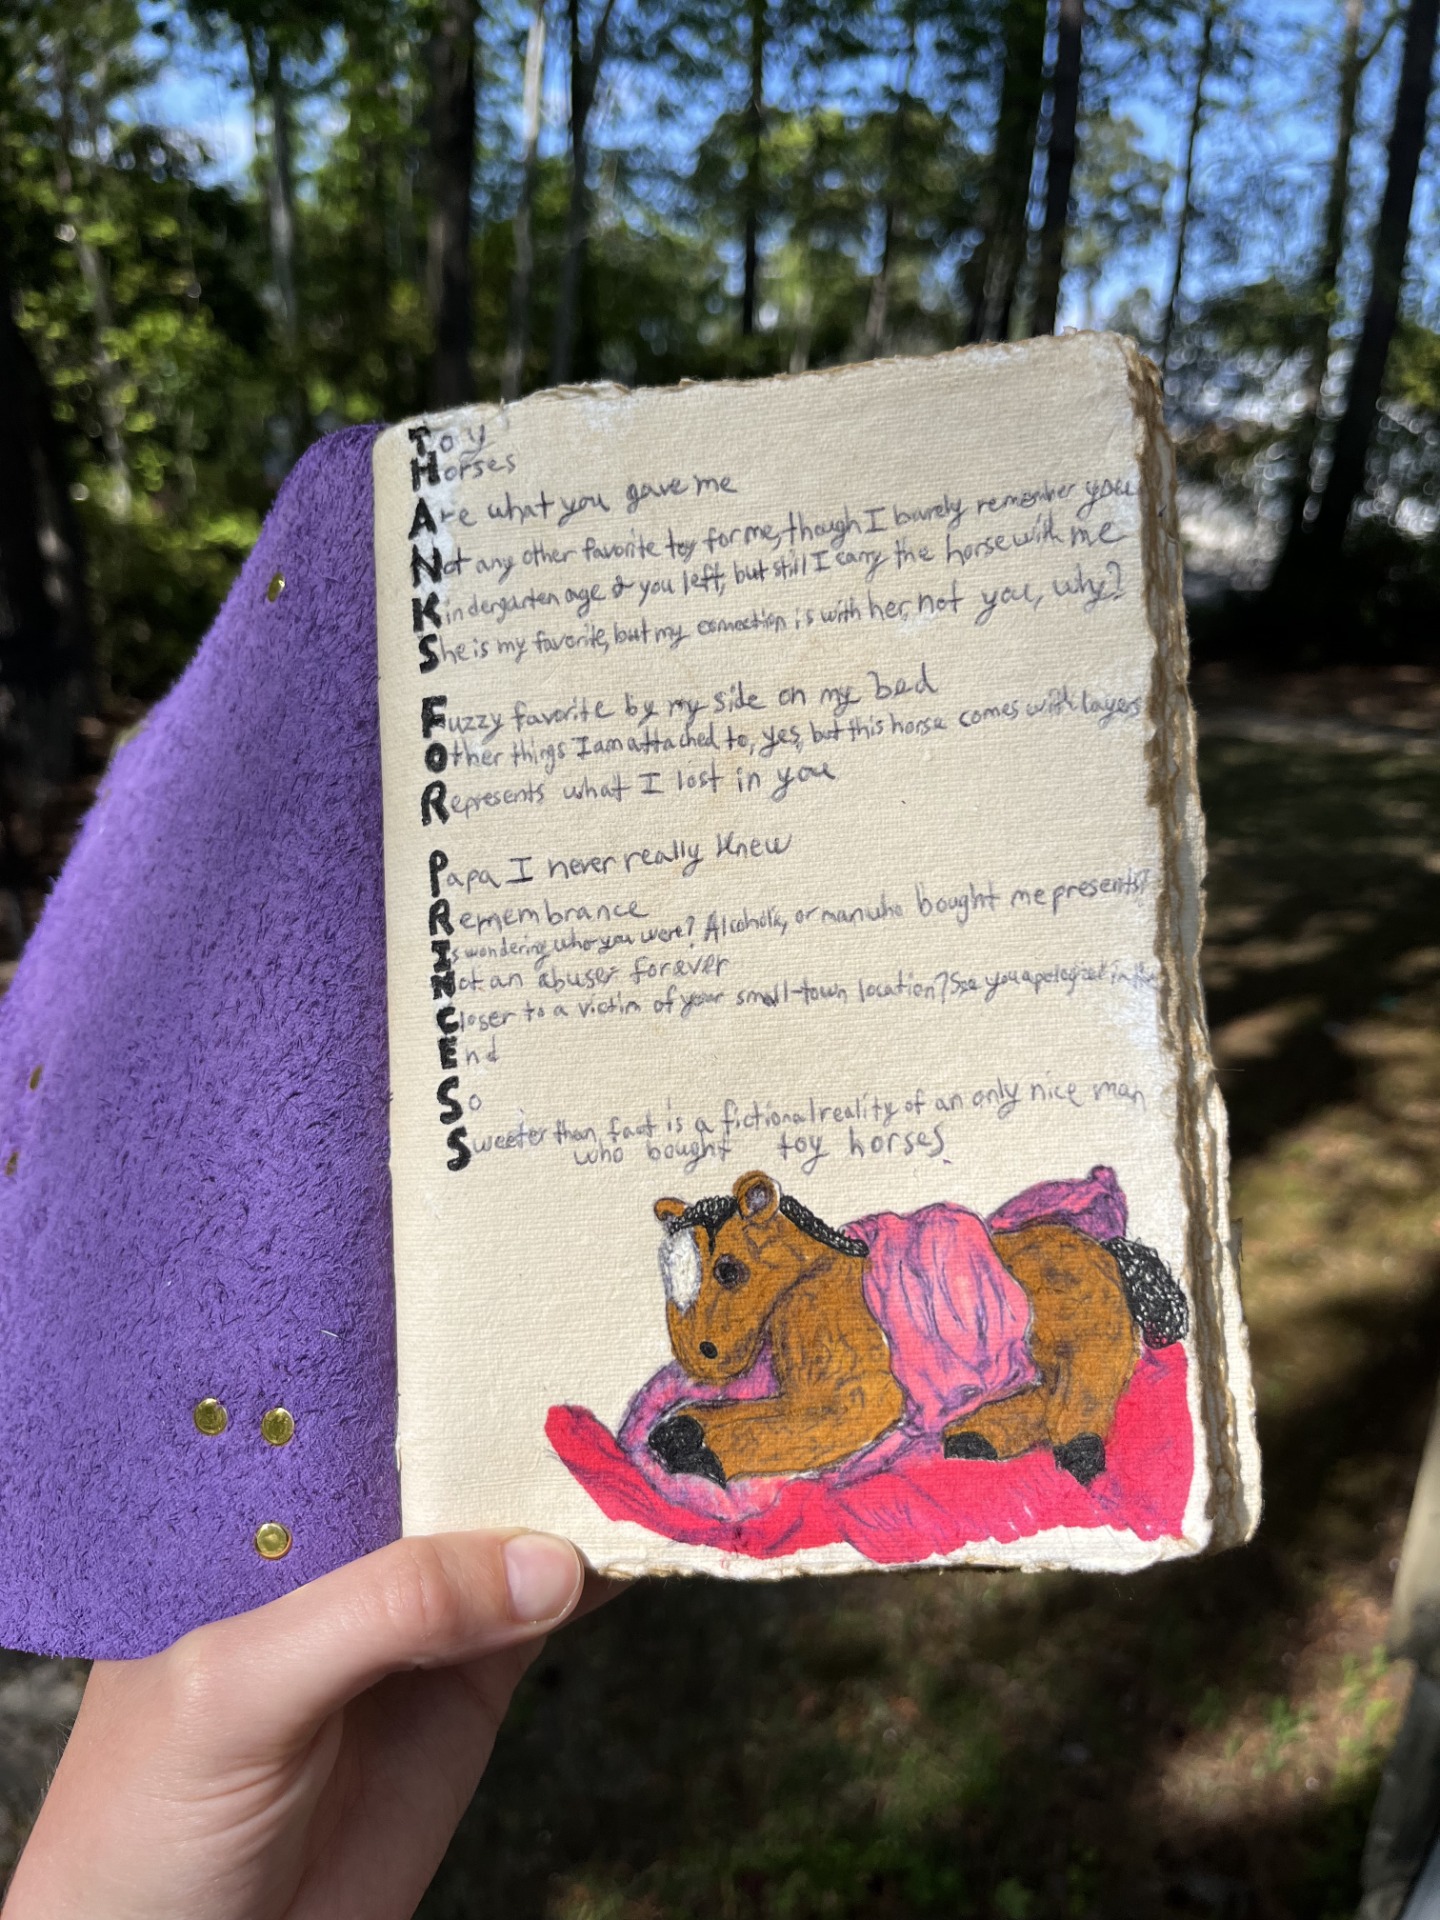 Toy
Horses
Are what you gave me
Not any other favorite toy for me, though I barely remember you
Kindergarten age & you left, but still I carry the horse with me
She is my favorite, but my connection is with her, not you, why?
Fuzzy favorite by my side on my bed
Other things I am attached to, yes, but this horse comes with layers
Represents what I lost in you
Papa I never really knew
Remembrance
Is wondering who you were? Alcoholic, or man who bought me presents?
Not an abuser forever
Closer to a victim of your small-town location? See you apologized in the
End
So
Sweeter than fact is a fictional reality of an only nice man
who bought toy horses.